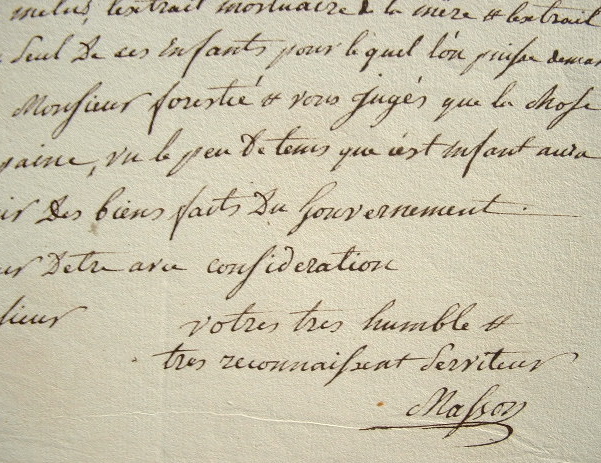 inclus, l'extrait mortuaire de la mère & l'extrait
seul De ces Enfants pour lequel l'on puisse deman
Monsieur forestié & vous jugés que la Chose
paine, vu le peu De tems que c'est Enfant aura
ir Des bien faits Du Gouvernement.
ur D'etre avec consideration
sieur votres tres humble &
tres reconnaissent Serviteur
Masson